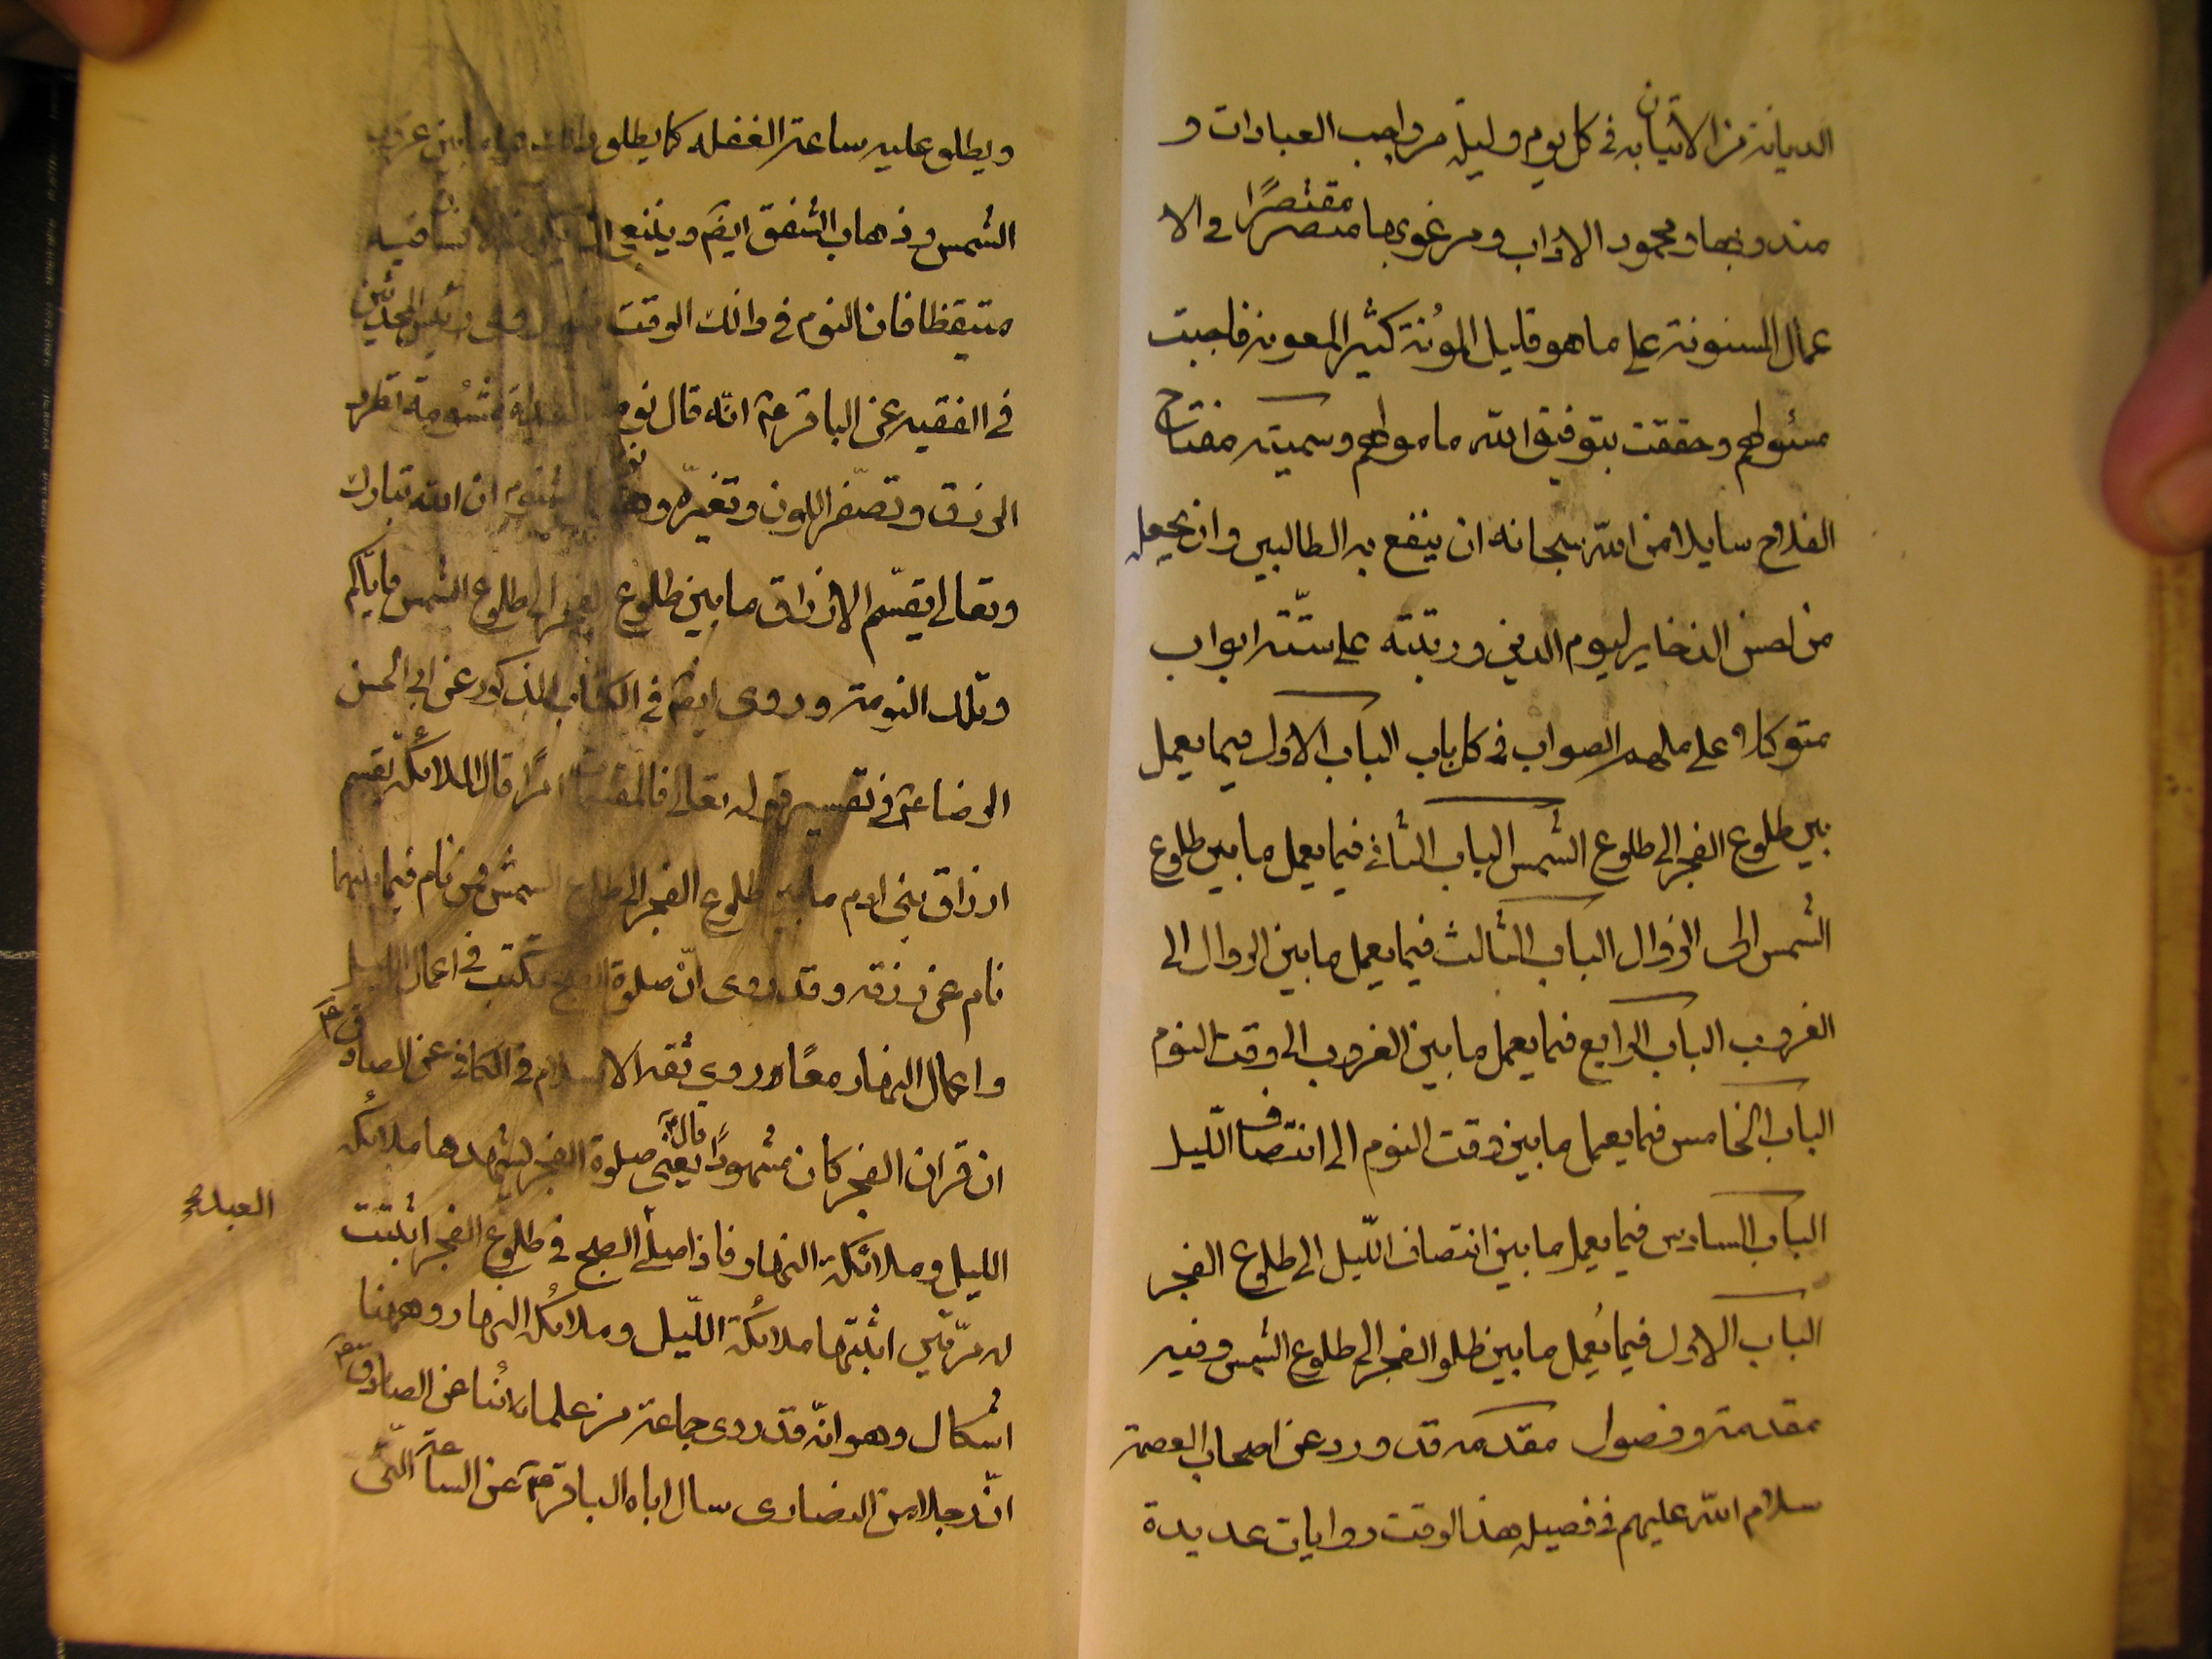 الديانة من الاتيان به فى كل يوم وليلة من واجب العبادات و
مندوبها ومحمود الاداب ومرغوبها مقتصرًا فى الا
عمال المسنونة على ما هو قليل المؤنة كثير المعونة فاجبت
مسئولهم وحققت بتوفيق الله مامولهم وسميته مفتاح
الفلاح سايلا من الله سبحانه ان ينفع به الطالبين وان يجعله
من احسن الذخاير ليوم الدين ورتبته على ستّة ابواب
متوكلا على ملهم الصواب فى كل باب الباب الاول فيما يعمل
بين طلوع الفجر الى طلوع الشمس الباب الثانى فيما يعمل ما بين طلوع
الشمس الى الزوال الباب الثالث فيما يعمل ما بين الزوال الى
الغروب الباب الرابع فيما يعمل ما بين الغروب الى وقت النوم
الباب الخامس فيما يعمل ما بين وقت النوم الى انتصاف الليل
الباب السادس فيما يعمل ما بين انتصاف الليل الى طلوع الفجر
الباب الاول فيما يُعمل ما بين طلو الفجر الى طلوع الشمس وفيه
مقدمة وفصول مقدمه قد ورد عن اصحاب العصمة
سلام الله عليهم فى فصيله هذا الوقت روايات عديدة
ويطلق عليه ساعة الغفله كما يطلق على ما بين غروب
الشمس وذهاب الشفق ايضَ وينبغى ان يكون الانسان فيه
متيقظا فان النوم فى ذالك الوقت روى رئيس المحدّثين
فى الفقيه عن الباقر عم انّه قال نومة الغداة مشومة تطرد
الرزق وتصفّر اللون وتغيّره وهو نوم كل مشئوم ان الله تبارك
وتعالى يقسّم الارزاق ما بين طلوع الفجر الى طلوع الشمس فاياكم
وتلك النومة وروى ايضَ فى الكتاب المذكور عن ابى الحسن
الرضا عم فى تفسير قوله تعالى فالمقسمات امرًا قال الملائكة تقسم
ارزاق بنى ادم ما بين طلوع الفجر الى طلوع الشمس فمن نام فيما بينهما
نام عن رزقه وقد روى انّ صلوة الصبح تكتب فى اعمال الليل
واعمال النهار معًا وروى ثقة الاسلام فى الكافى عن الصادق عم
ان قران الفجر كان مشهودًا قال يعنى صلوة الفجر يشهدها ملائكه
الليل وملائكة النهار فاذا صلّى الصبح فى طلوع الفجر اثبتت
العبد
له مرّتين اثبتها ملائكة الليل وملائكه النهار وههنا
اشكال وهو انّه قد روى جماعة من علمائنا عن الصادق عم
انّ رجلا من النصارى سال اباه الباقر عم عن الساعة التى